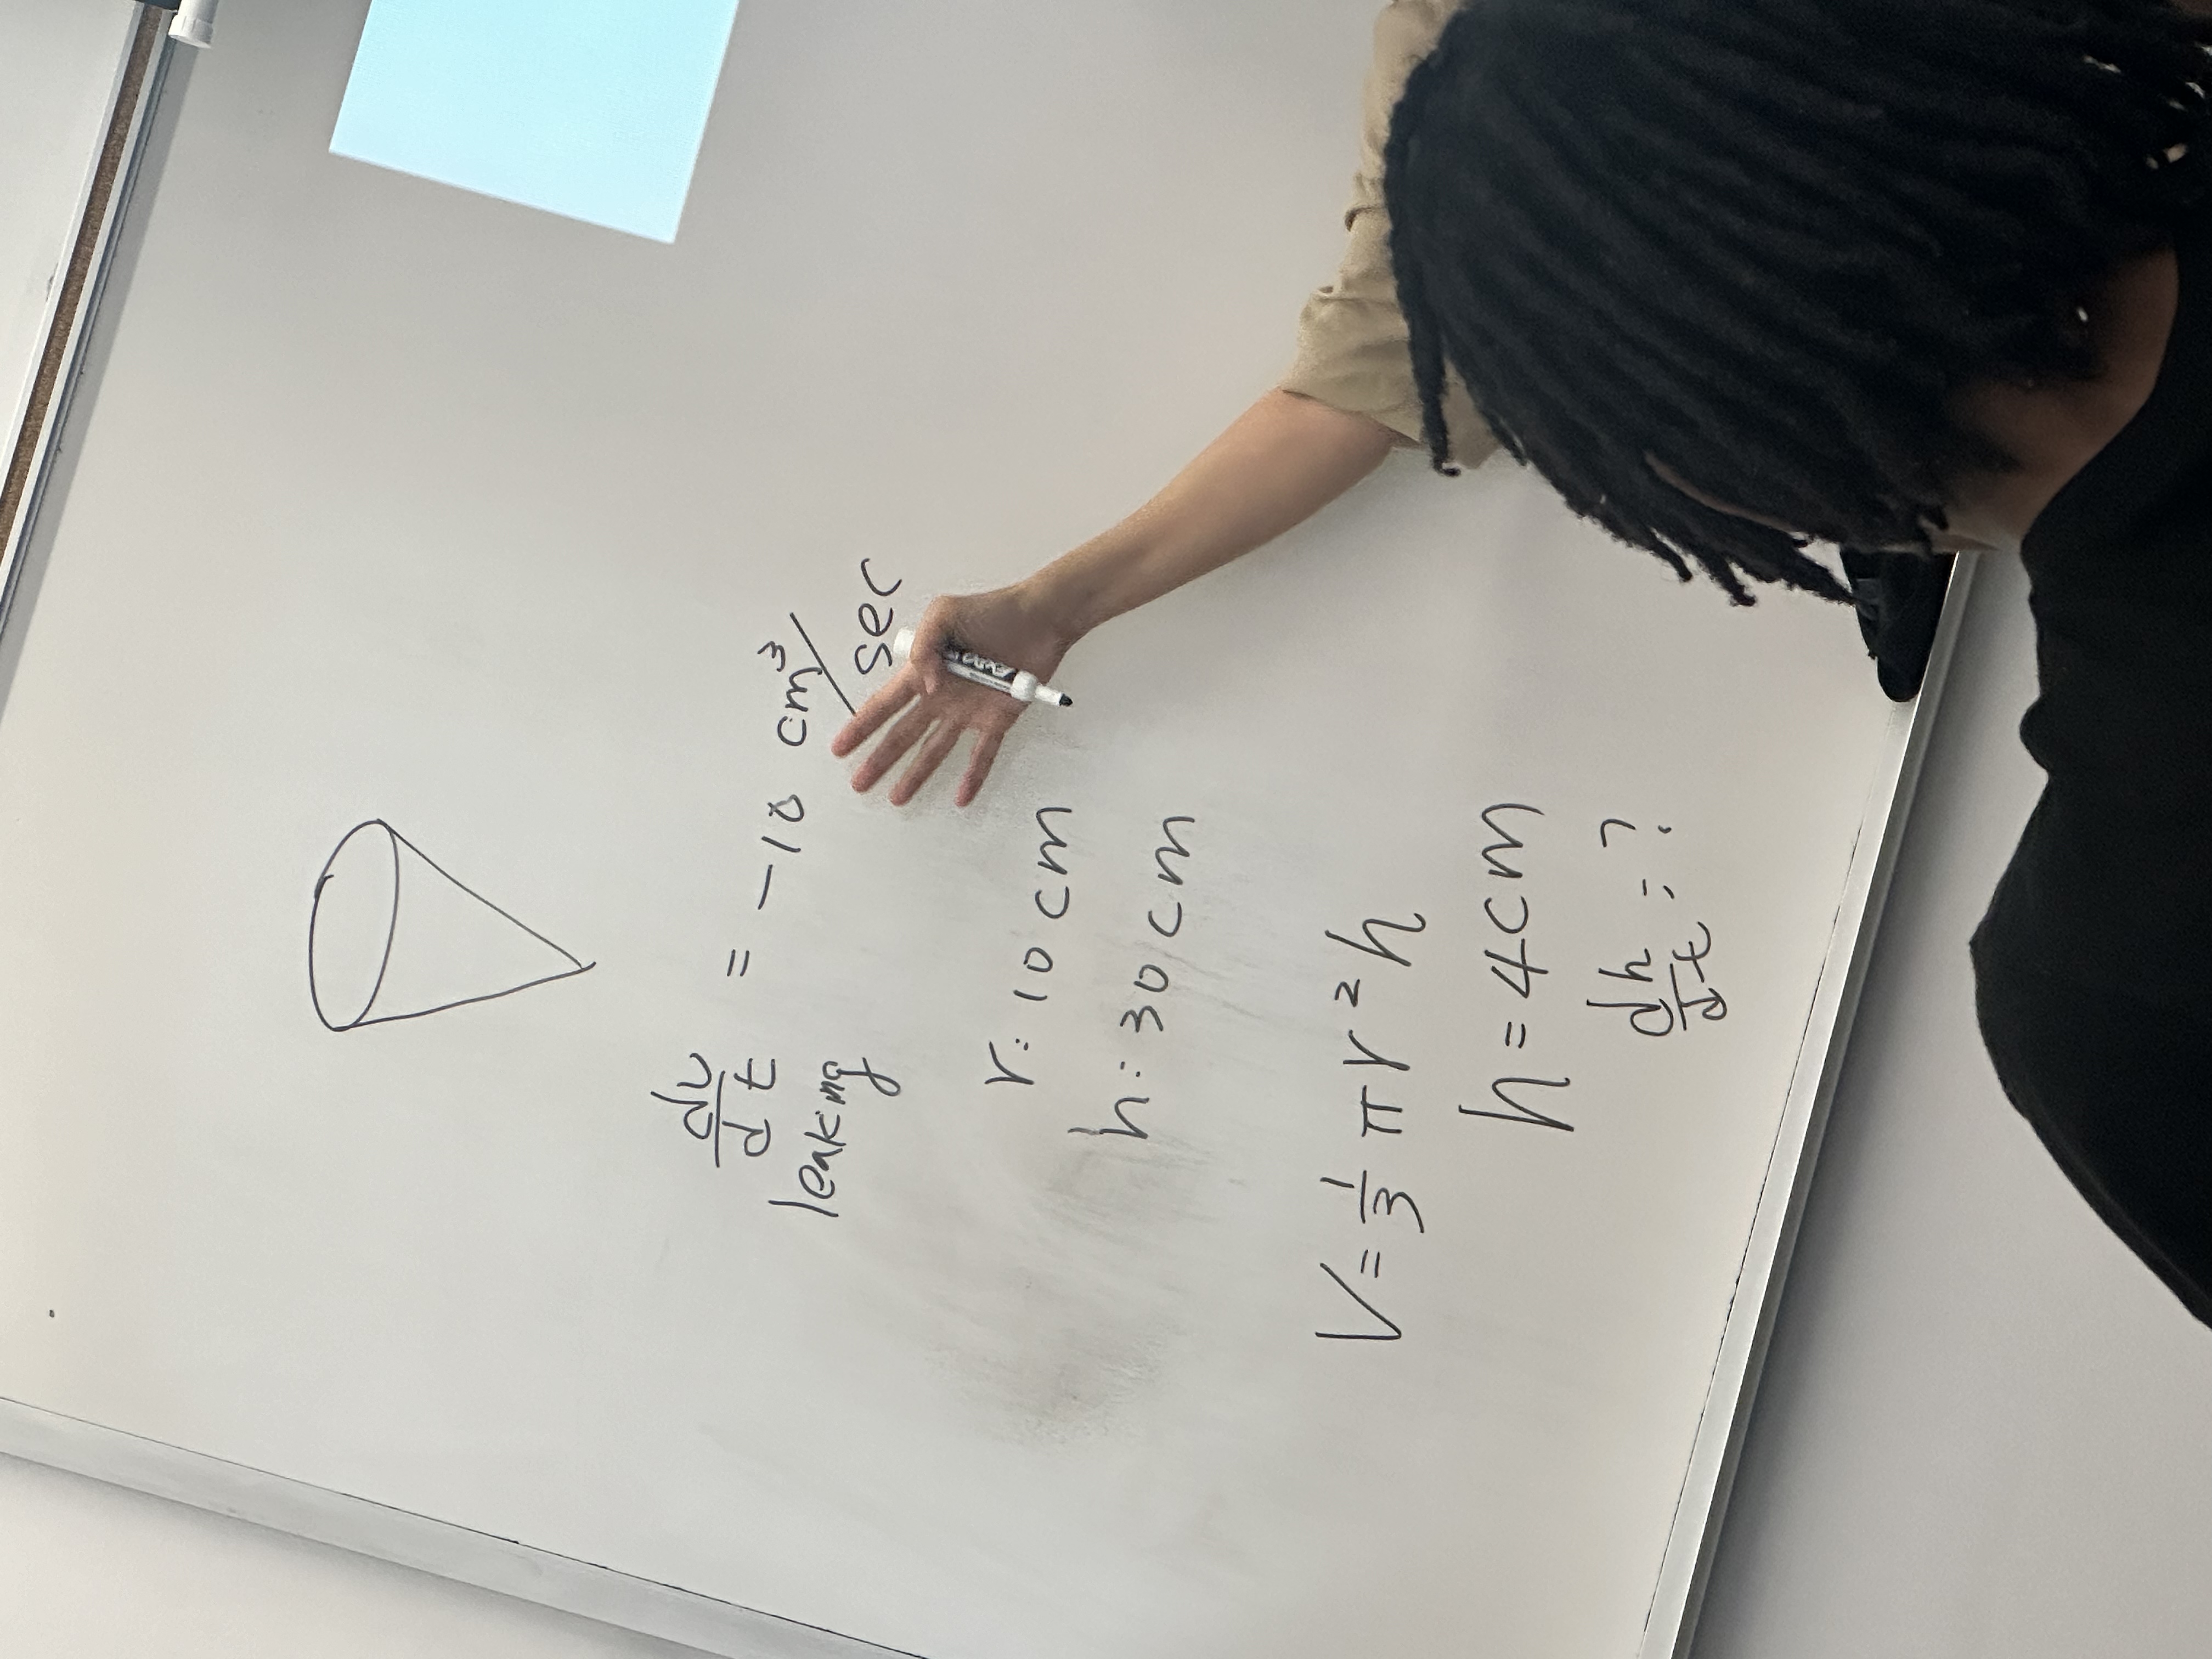 dv/dt = -10 cm³/sec
leaking
r: 10 cm
h: 30 cm
V = 1/3 π r² h
h = 4cm
dh/dt = ?